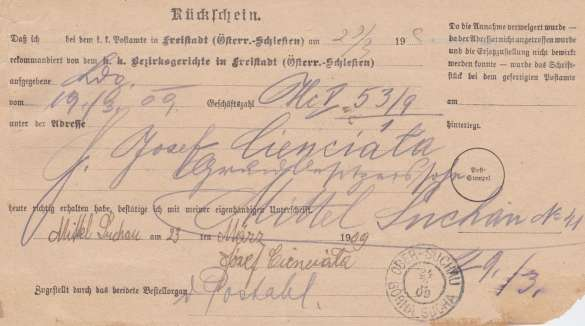 Rückschein.
Daß ich bei dem k. k. Postamte in Freistadt (Österr.-Schlesien) am 190
rekommandiert von dem k. k. Bezirksgerichte in Freistadt (Österr.-Schlesien)
aufgegebene
vom 19./3. 09. Geschäftszahl 53/9
1
unter der Adresse
Josef Cienciała
Grundbesitzerssohn
Mittel Suchau No 41
heute richtig erhalten habe, bestätige ich mit meiner eigenhändigen Unterschrift.
Mittel Suchau am 23 ten März 1909
Józef Cienciała
Zugestellt durch das beeidete Bestellorgan
Do die Annahme verweigert wurde —
der Adressat nicht angetroffen wurde
und die Ersatzzustellung nicht bewirkt
werden konnte — wurde das Schrift-
stück bei dem gefertigten Postamte
am
hinterlegt.
Post-
Stempel
OBER-SUCHAU
GÓRNA SUCHA